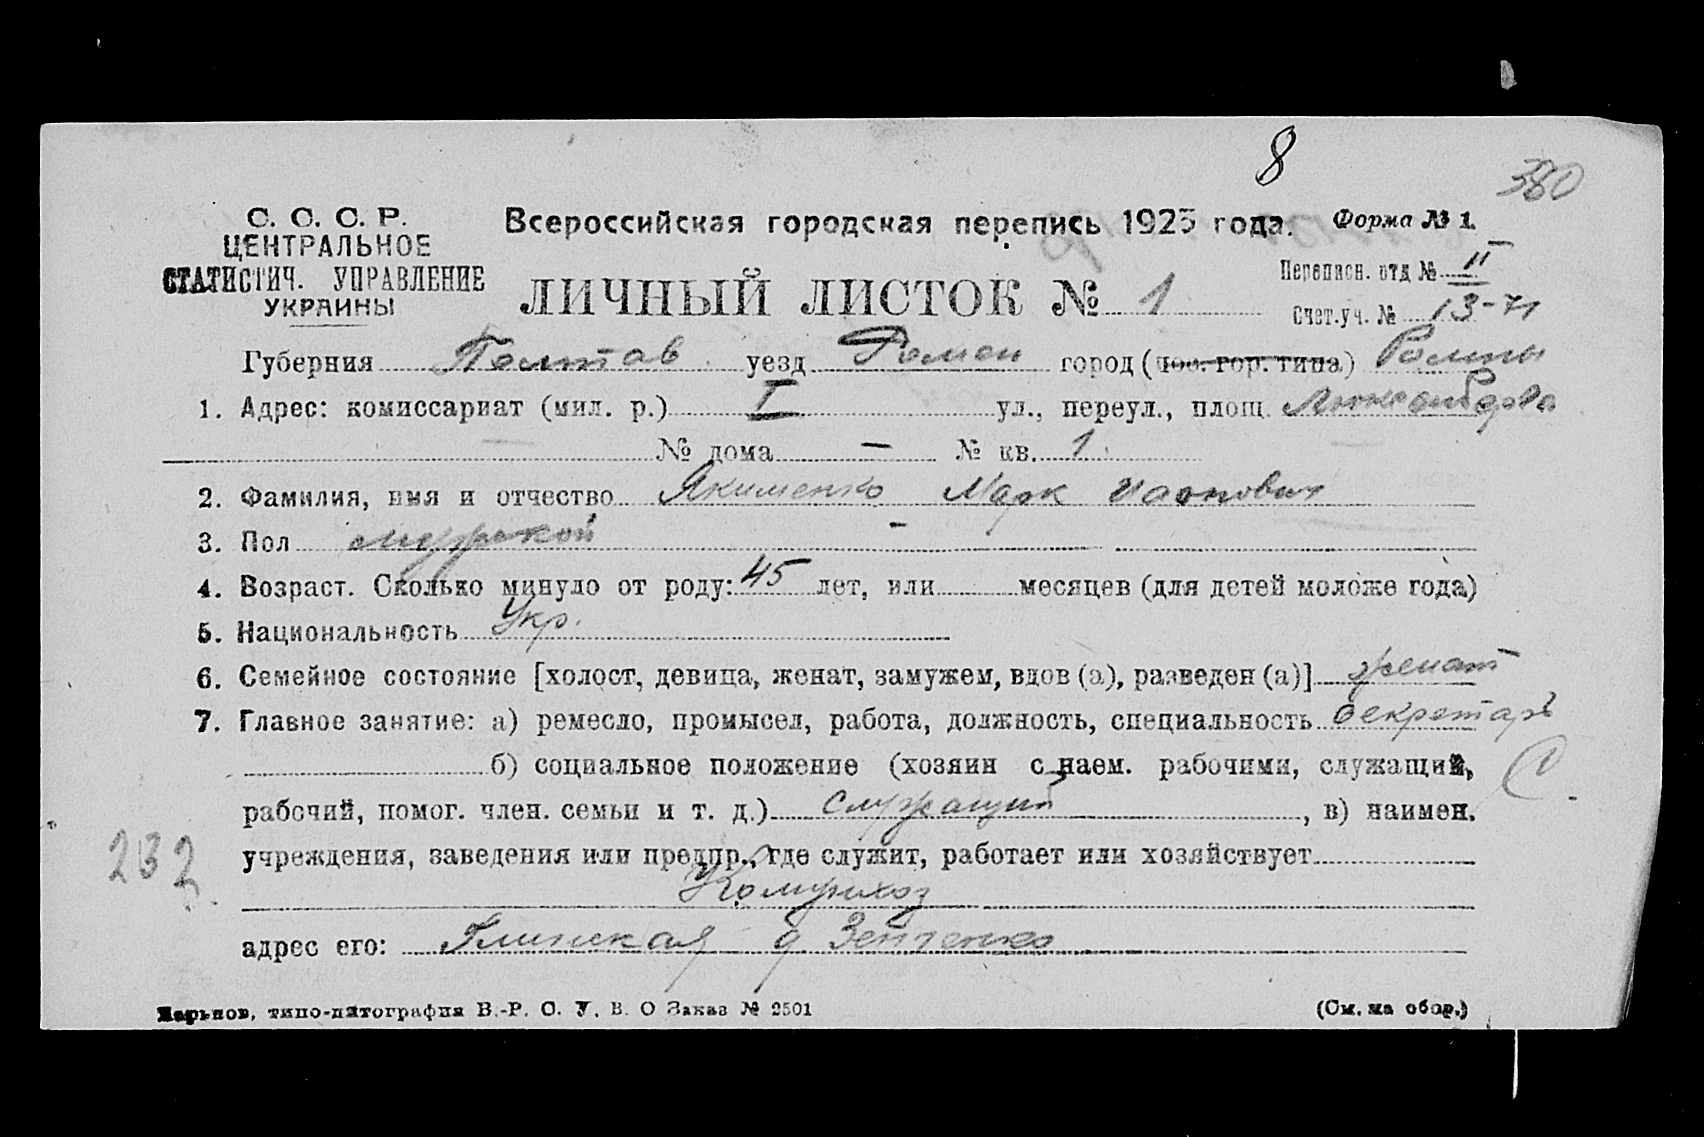 8
380
С. С. С. Р.
ЦЕНТРАЛЬНОЕ
СТАТИСТИЧ. УПРАВЛЕНИЕ
УКРАИНЫ
Всероссийская городская перепись 1923 года. Форма № 1.
ЛИЧНЫЙ ЛИСТОК № 1
Переписн. отд № II
Счет.уч. № 13-71
Губерния Полтав уезд Ромен город (пос. гор. типа) Ромны
1. Адрес: комиссариат (мил. р.) I ул., переул., площ.
№ дома — № кв. 1
2. Фамилия, имя и отчество Якименко Марк
3. Пол мужской
4. Возраст. Сколько минуло от роду: 45 лет, или месяцев (для детей моложе года)
5. Национальность Укр.
6. Семейное состояние [холост, девица, женат, замужем, вдов (а), разведен (а)] женат
7. Главное занятие: а) ремесло, промысел, работа, должность, специальность секретарь
б) социальное положение (хозяин с наем. рабочими, служащий,
рабочий, помог. член. семьи и т. д.) служащий, в) наимен.
учреждения, заведения или предпр., где служит, работает или хозяйствует
232
Комунхоз
адрес его: Глинская д
Харьков, типо-литография В.-Р. С. У. В. О Заказ № 2501 (См. на обор.)